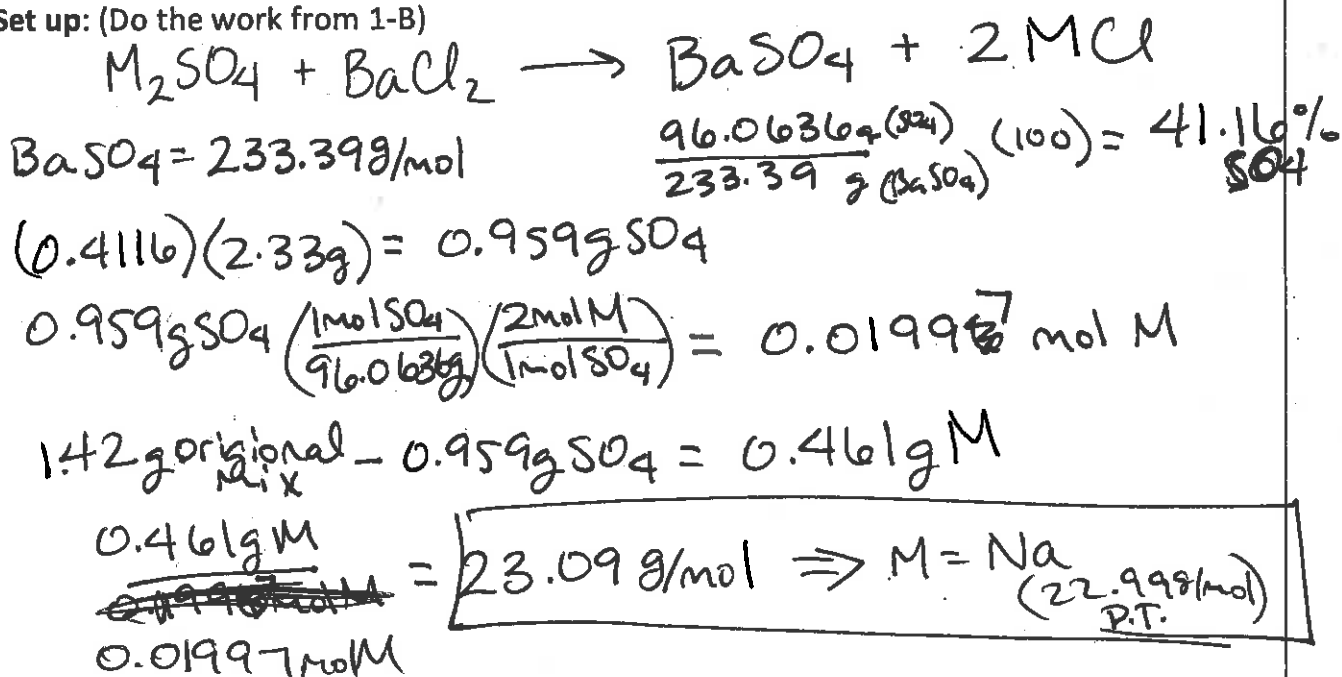 Set up: (Do the work from 1-B)
M₂SO₄ + BaCl₂ → BaSO₄ + 2MCl
BaSO₄ = 233.39g/mol
96.0636g (SO₄) / 233.39 g (BaSO₄) (100) = 41.16% SO4
(0.4116)(2.33g) = 0.959g SO₄
0.959g SO₄ (1mol SO₄ / 96.0636g) (2mol M / 1mol SO₄) = 0.01997 mol M
1.42g origional mix - 0.959g SO₄ = 0.461g M
0.461g M / 0.01997 mol M = 23.09 g/mol ⇒ M = Na
(22.99g/mol)
P.T.